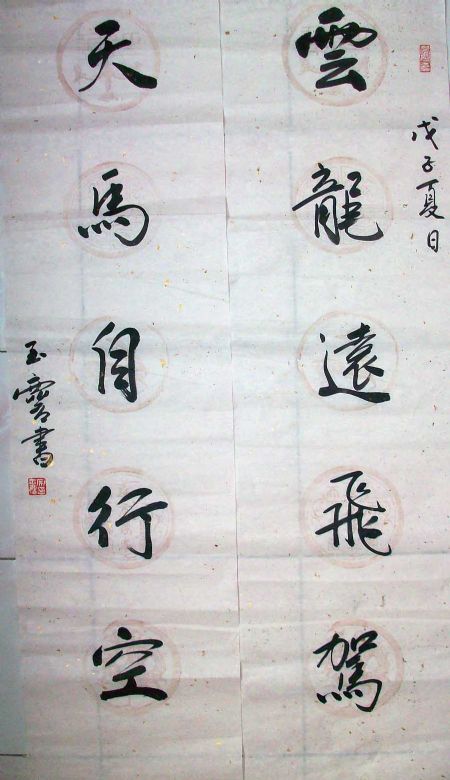 戊子夏日
雲龍遠飛駕
天馬自行空
玉書